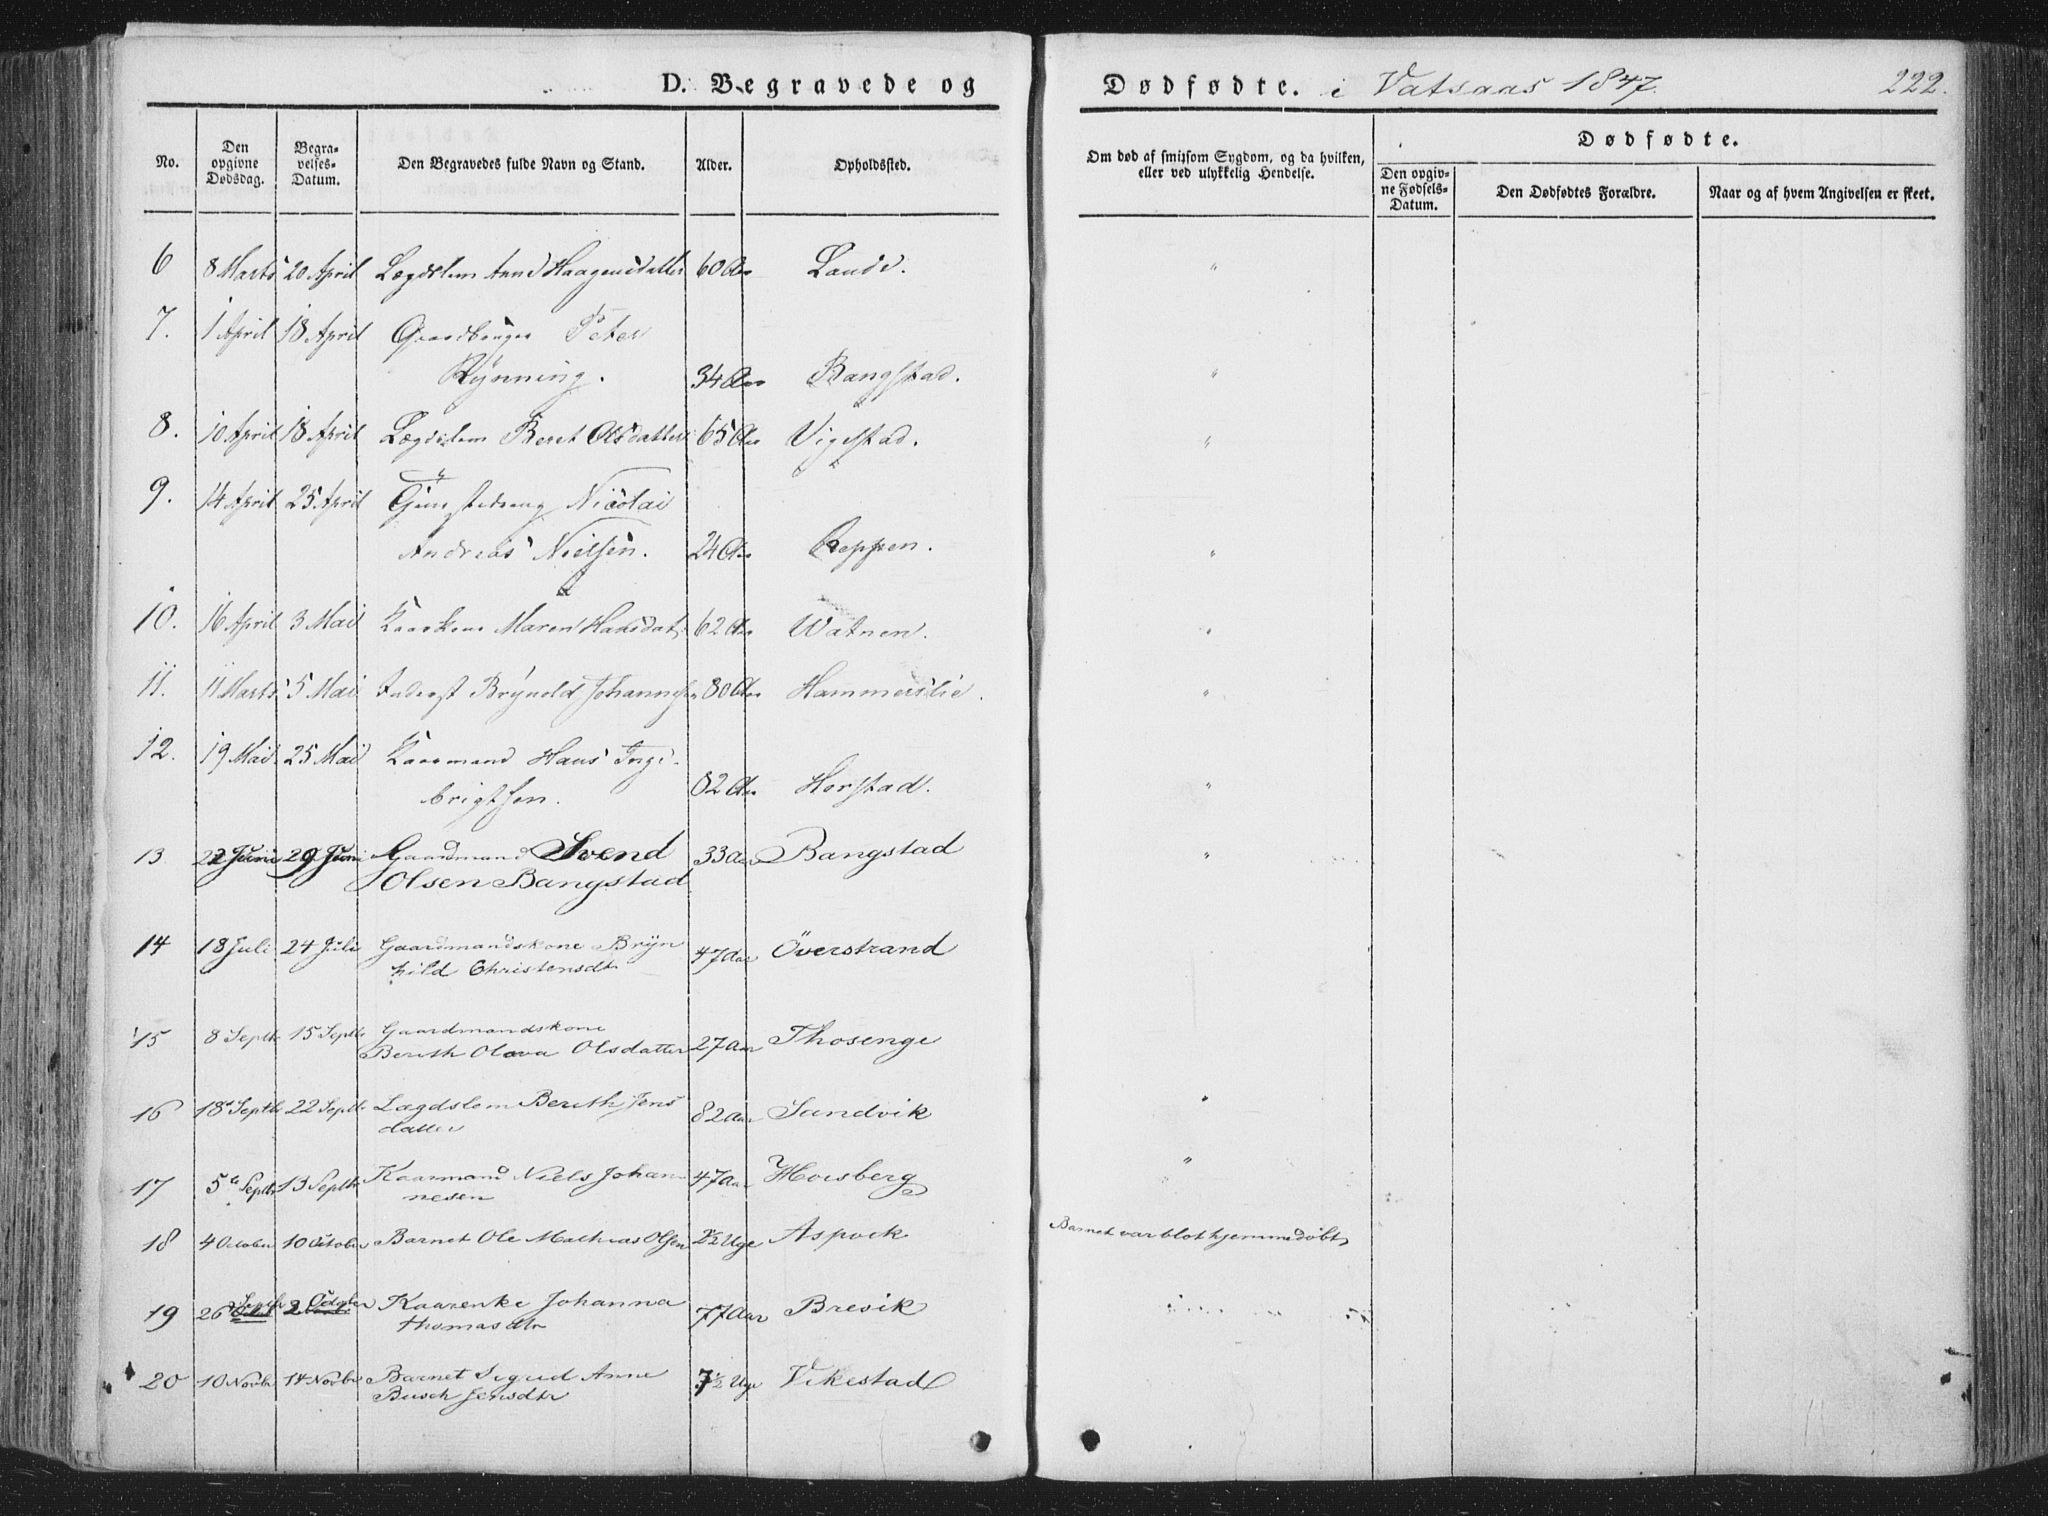 D. Begravede og Dødfødte. i Vatsaas 1847. 222.
No.
Den opgivne Dødsdag.
Begravelses-Datum.
Den Begravedes fulde Navn og Stand.
Alder.
Opholdssted.
Om død af smitsom Sygdom, og da hvilken,
eller ved ulykkelig Hendelse.
Dødfødte.
Den opgivne Fødsels-Datum.
Den Dødfødtes Forældre.
Naar og af hvem Angivelsen er skeet.
6 8 Marts 20 April Lægdslem Anne Haagensdatter 60 Aar Lande. "
7. 1 April 18 April Gaardbruger Peter
Rÿnning. 34 Aar Bangstad. "
8. 10 April 18 April Lægdslem Beret Olsdatter 65 Aar Vigestad. "
9. 14 April 25 April Tjenestedreng Nicolai
Andreas Nielsen. 24 Aar Reppen. "
10. 16 April 3 Mai Kaarkone Maren Hansdat. 62 Aar Watnen. "
11. 11 Marts 5 Mai Inderst Brÿnold Johannessen 80 Aar Hammerslie. "
12. 19 Mai 25 Mai Kaarmand Hans Inge-
brigtsen. 82 Aar Horstad. "
13 22 Juni 29 Juni Gaardmand Svend 33 Aar Bangstad "
Olsen Bangstad
14 18 Juli 24 Juli Gaardmandskone Brÿn
hild Christensdtr 47 Aar Överstrand
15 8 Septbr 15 Septbr Gaardmandskone
Bereth Olava Olsdatter 27 Aar Thosenge
16 18 Septbr 22 Septbr Lægdslem Bereth Jens 82 Aar Sandvik "
datter
17 5te Septbr 13 Septbr Kaarmand Niels Johan 47 Aar Horsberg "
nesen
18 4 October 10 October Barnet Ole Mathias Olsen 2½ Uge Aspvik Barnet var blot hjemmedøbt
19 26 Septbr 2 October Kaarenke Johanna 77 Aar Brevik
Thomasdtr
20 10 Novbr 14 Novbr Barnet Sigrid Anne 7½ Uge Vikestad
Busch Jensdtr